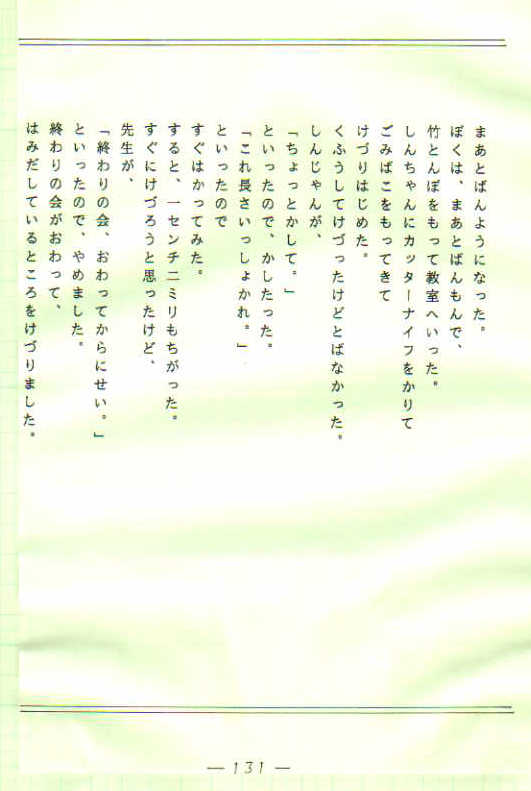 まあとばんようになった。
ぼくは、まあとばんもんで、
竹とんぼをもって教室へいった。
しんちゃんにカッターナイフをかりて
ごみばこをもってきて
けづりはじめた。
くふうしてけづったけどとばなかった。
しんじゃんが、
「ちょっとかして。」
といったので、かしたった。
「これ長さいっしょかれ。」
といったので
すぐはかってみた。
すると、一センチ二ミリもちがった。
すぐにけづろうと思ったけど、
先生が、
「終わりの会、おわってからにせい。」
といったので、やめました。
終わりの会がおわって、
はみだしているところをけづりました。
— 131 —